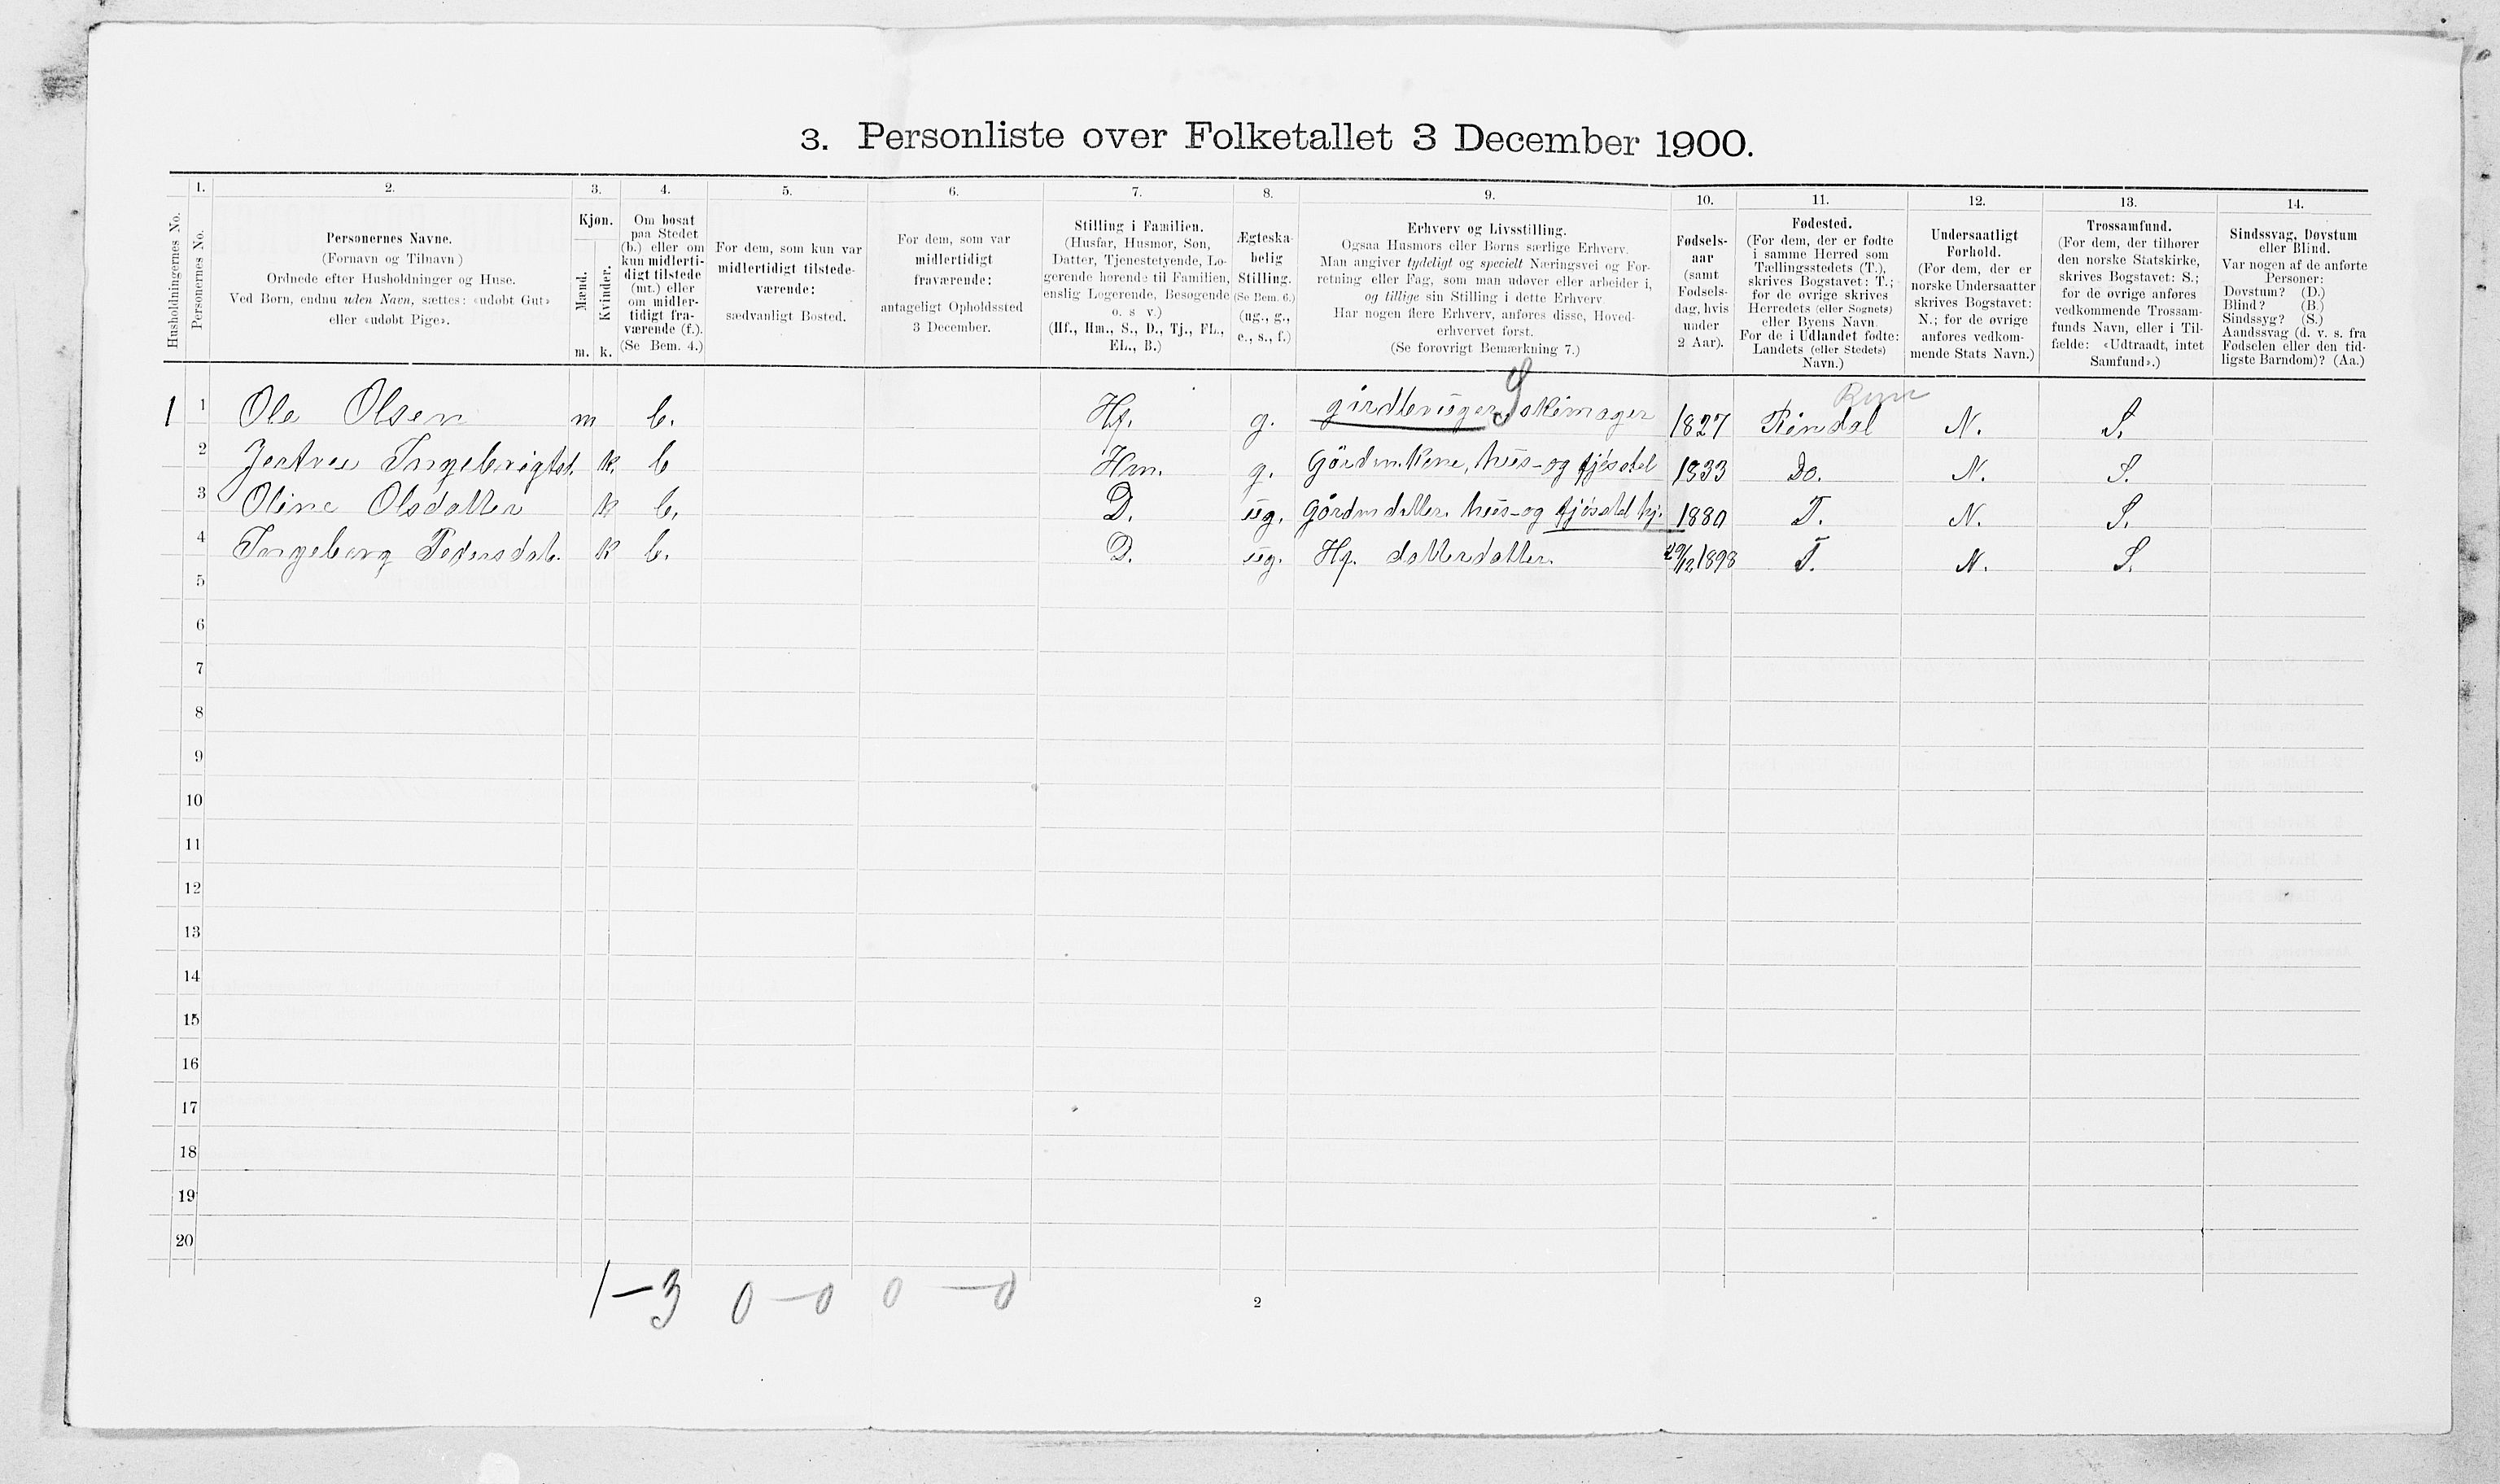 3. Personliste over Folketallet 3 December 1900.
Husholdningernes No.
1.
Personernes No.
2.
Personernes Navne.
(Fornavn og Tilnavn)
Ordnede efter Husholdninger og Huse.
Ved Børn, endnu uden Navn, sættes: «udøbt Gut»
eller «udøbt Pige».
3.
Kjøn.
Mænd.
Kvinder.
m. k.
4.
Om bosat
paa Stedet
(b.) eller om
kun midlerti-
digt tilstede
(mt.) eller
om midler-
tidigt fra-
værende (f.).
(Se Bem. 4.)
5.
For dem, som kun var
midlertidigt tilstede-
værende:
sædvanligt Bosted.
6.
For dem, som var
midlertidigt
fraværende:
antageligt Opholdssted
3 December.
7.
Stilling i Familien.
(Husfar, Husmor, Søn,
Datter, Tjenestetyende, Lo-
gerende hørende til Familien,
enslig Logerende, Besøgende
o. s v.)
(Hf., Hm., S., D., Tj., FL.,
EL., B.)
8.
Ægteska-
belig
Stilling.
(Se Bem. 6.)
(ug., g.,
e., s., f.)
9.
Erhverv og Livsstilling.
Ogsaa Husmors eller Børns særlige Erhverv.
Man angiver tydeligt og specielt Næringsvei og For-
retning eller Fag, som man udøver eller arbeider i,
og tillige sin Stilling i dette Erhverv
Har nogen flere Erhverv, anføres disse, Hoved-
erhvervet først.
(Se forøvrigt Bemærkning 7.)
10.
Fødsels-
aar
(samt
Fødsels-
dag, hvis
under
2 Aar).
11.
Fødested.
(For dem, der er fødte
i samme Herred som
Tællingsstedets (T.),
skrives Bogstavet: T.;
for de øvrige skrives
Herredets (eller Sognets)
eller Byens Navn.
For de i Udlandet fødte:
Landets (eller Stedets)
Navn.)
12.
Undersaatligt
Forhold.
(For dem, der er
norske Undersaatter
skrives Bogstavet:
N.; for de øvrige
anføres vedkom-
mende Stats Navn.)
13.
Trossamfund.
(For dem, der tilhører
den norske Statskirke,
skrives Bogstavet: S.;
for de øvrige anføres
vedkommende Trossam-
funds Navn, eller i Til-
fælde: «Udtraadt, intet
Samfund».)
14.
Sindssvag, Døvstum
eller Blind.
Var nogen af de anførte
Personer:
Døvstum? (D.)
Blind? (B.)
Sindssyg? (S.)
Aandssvag (d. v. s. fra
Fødselen eller den tid-
ligste Barndom)? (Aa.)
1 1 Ole Olsen m b. Hf. g. S 1827 Rindal N. S.
2 Ingebrigtsd. k. b Hm. g. hus- og fjøsstel 1833 Do. N. S.
3 Oline Olsdatter k b. D. ug. Gårdm datter. hus- og fjøsstel hj. 1880 T. N. S.
4 Ingeborg Pedersdat. k b. D. ug. Hf. datterdatter. 29/12 1898 T. N. S.
5
6
7
8
9
10
11
12
13
14
15
16
17
18
19
20
1 — 3 0 — 0 0 — 0
2